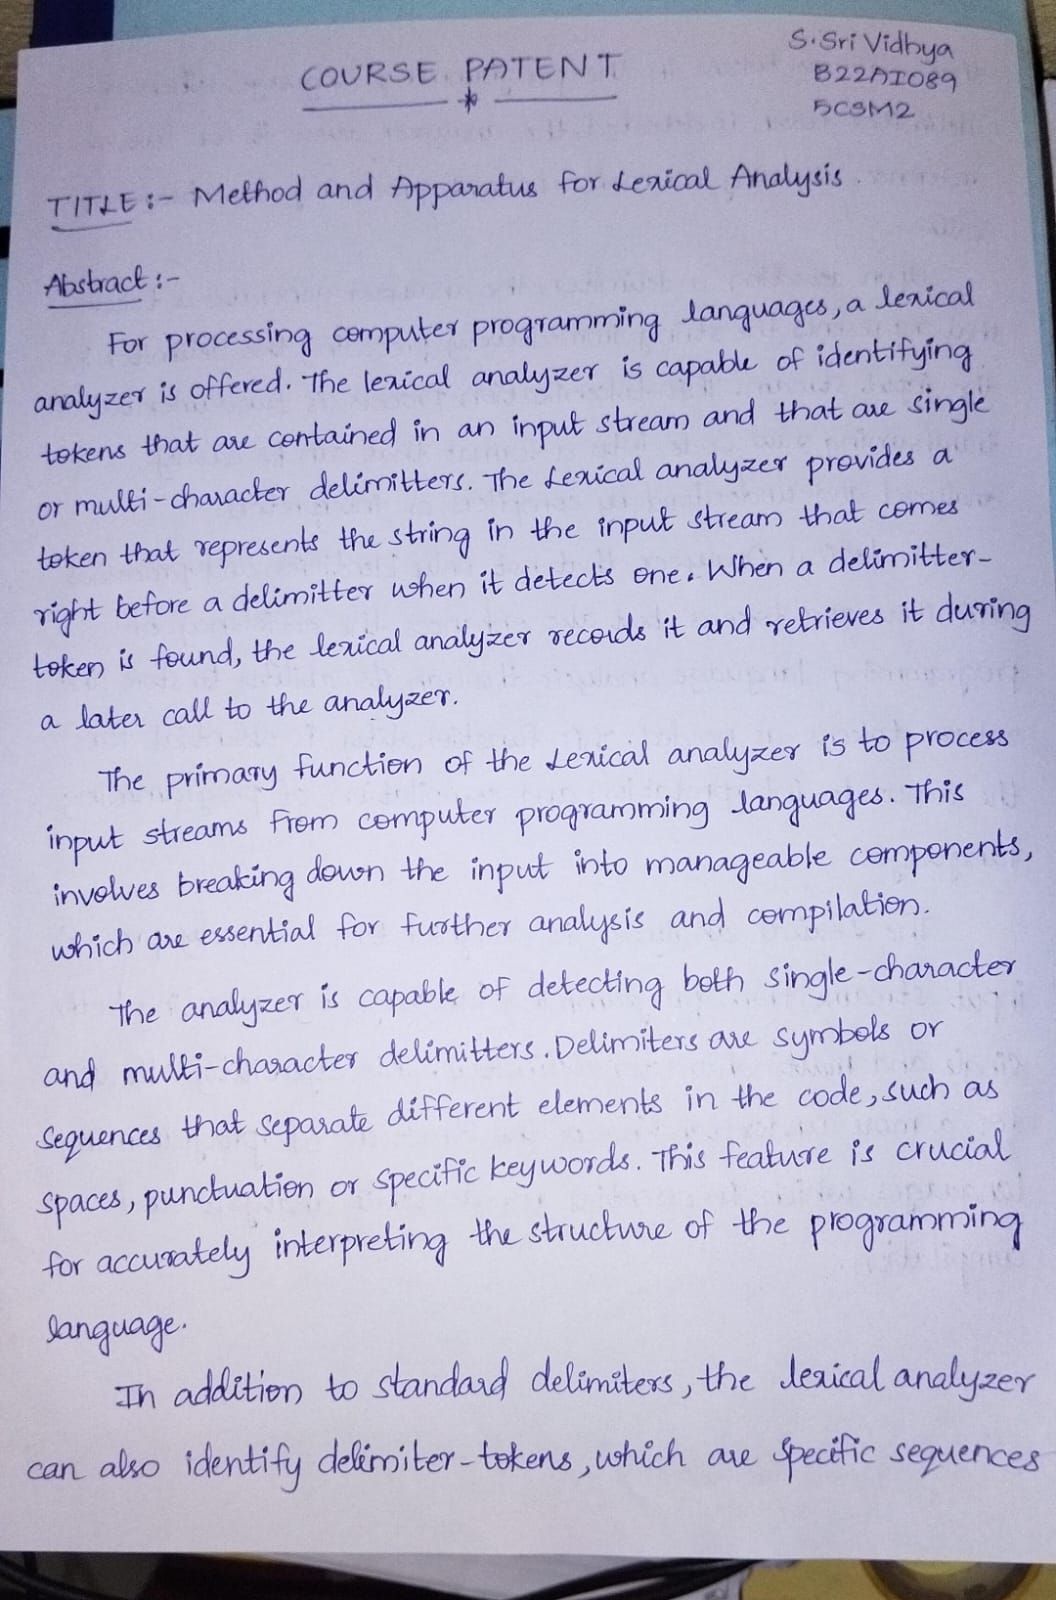 S. Sri Vidhya
COURSE PATENT
B22AI089
5CSM2
TITLE :- Method and Apparatus for Lexical Analysis.
Abstract :-
For processing computer programming languages, a lexical
analyzer is offered. The lexical analyzer is capable of identifying
tokens that are contained in an input stream and that are single
or multi-character delimitters. The Lexical analyzer provides a
token that represents the string in the input stream that comes
right before a delimitter when it detects one. When a delimitter-
token is found, the lexical analyzer records it and retrieves it during
a later call to the analyzer.
The primary function of the Lexical analyzer is to process
input streams from computer programming languages. This
involves breaking down the input into manageable components,
which are essential for further analysis and compilation.
The analyzer is capable of detecting both single-character
and multi-character delimitters. Delimiters are symbols or
sequences that separate different elements in the code, such as
spaces, punctuation or specific keywords. This feature is crucial
for accurately interpreting the structure of the programming
language.
In addition to standard delimiters, the lexical analyzer
can also identify delimiter-tokens, which are specific sequences